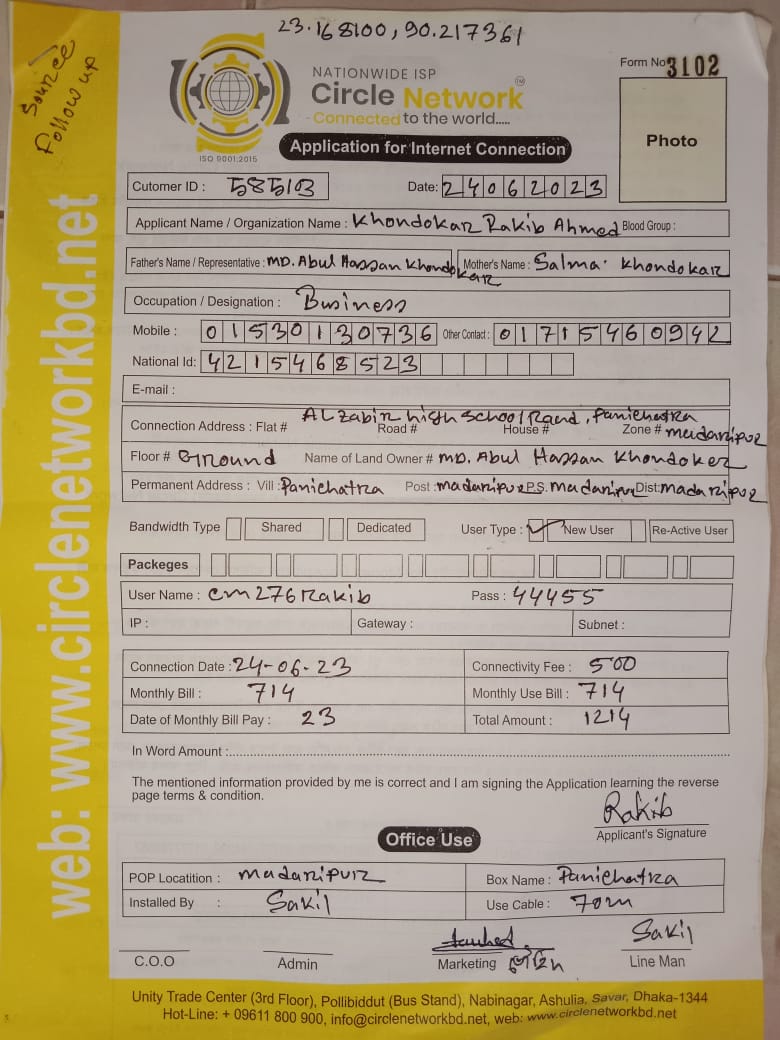 23.168100, 90.217361
Source
Follow up
NATIONWIDE ISP
Circle Network
TM
Connected to the world.....
ISO 9001:2015
Form No 3102
Photo
Application for Internet Connection
Cutomer ID : 58513 Date: 24062023
Applicant Name / Organization Name : Khondokar Rakib Ahmed Blood Group :
Father's Name / Representative : MD. Abul Hassan Khondokar Mother's Name : Salma Khondokar
Occupation / Designation : Business
Mobile : 01530130736 Other Contact : 01715460942
National Id: 4215468523
E-mail :
Connection Address : Flat # Road # House # Zone #
AL zabir high school Raod, Panichatra madaripur
Floor # Ground Name of Land Owner # MD. Abul Hassan Khondoker
Permanent Address : Vill : Panichatra Post : madaripur P.S. Madaripur Dist: Madaripur
Bandwidth Type Shared Dedicated User Type : ✓ New User Re-Active User
Packeges
User Name : cm276rakib Pass : 44455
IP : Gateway : Subnet :
Connection Date : 24-06-23 Connectivity Fee : 500
Monthly Bill : 714 Monthly Use Bill : 714
Date of Monthly Bill Pay : 23 Total Amount : 1214
In Word Amount :
The mentioned information provided by me is correct and I am signing the Application learning the reverse
page terms & condition.
Rakib
Applicant's Signature
Office Use
POP Locatition : Madaripur Box Name : Panichatra
Installed By : Sakil Use Cable : 70m
Sakil
C.O.O Admin Marketing Line Man
Unity Trade Center (3rd Floor), Pollibiddut (Bus Stand), Nabinagar, Ashulia, Savar, Dhaka-1344
Hot-Line: + 09611 800 900, info@circlenetworkbd.net, web: www.circlenetworkbd.net
web: www.circlenetworkbd.net